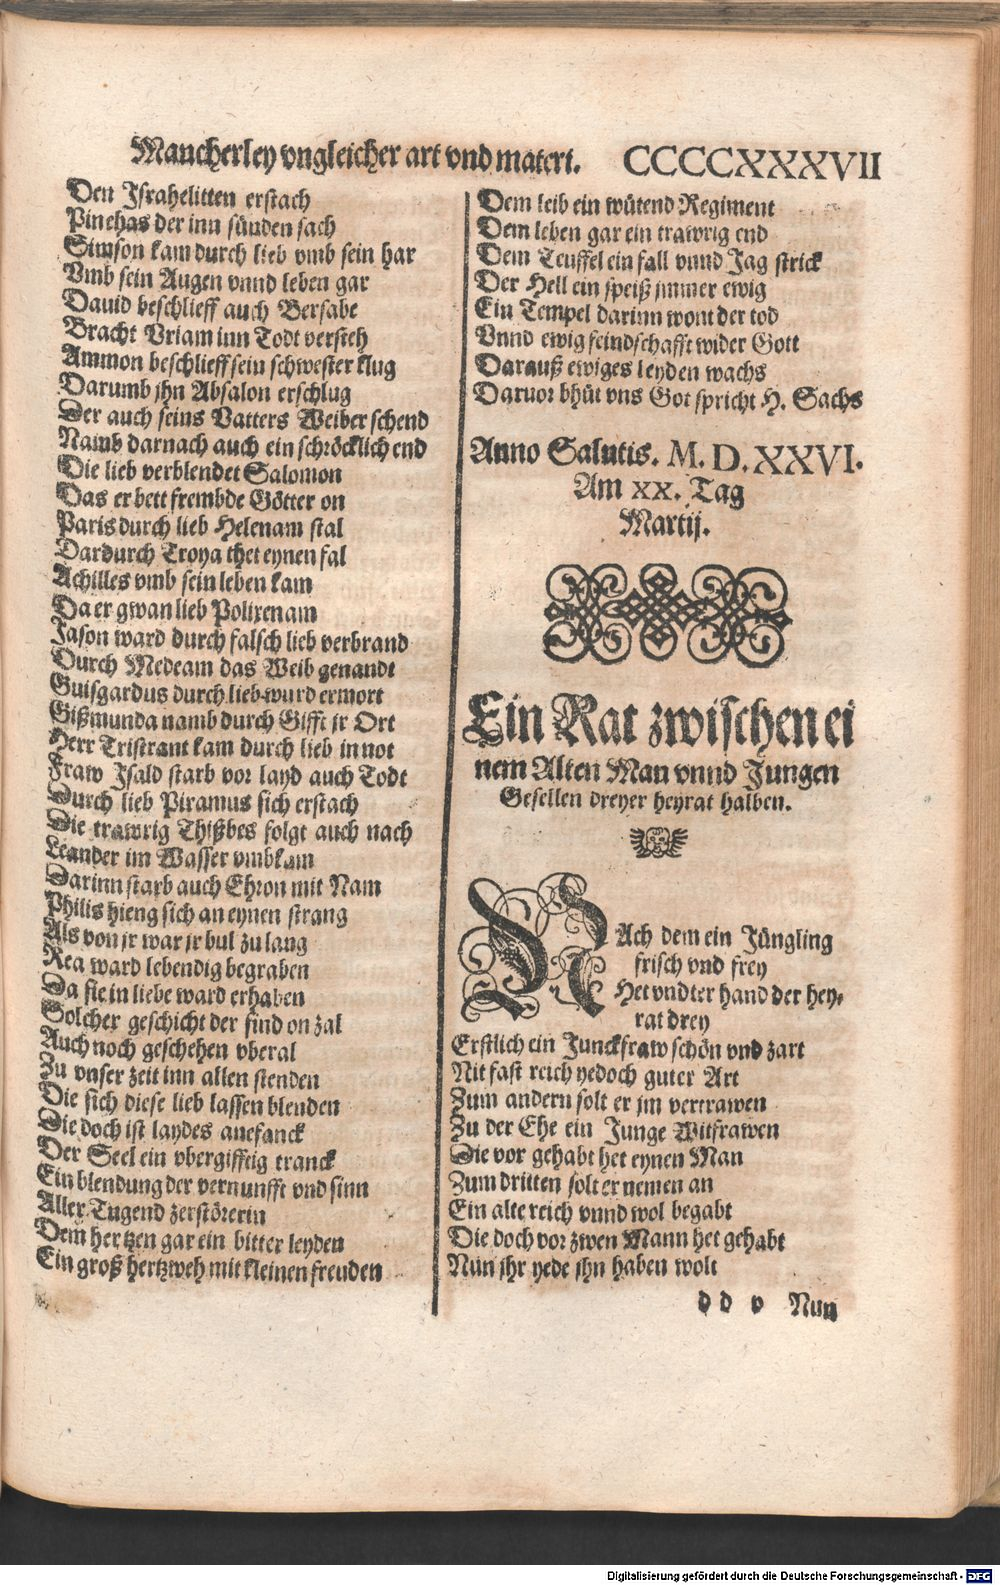 Mancherley vngleicher art vnd materi. CCCCXXXVII
Den Israhelitten erstach
Pinehas der inn sünden sach
Simson kam durch lieb vmb sein har
Vmb sein Augen vnnd leben gar
Dauid beschlieff auch Bersabe
Bracht Vriam inn Todt versteh
Ammon beschlieff sein schwester klug
Darumb jhn Absalon erschlug
Der auch seins Vatters Weiber schend
Namb darnach auch ein schröcklich end
Die lieb verblendet Salomon
Das er bett frembde Götter on
Paris durch lieb Helenam stal
Dardurch Troya thet eynen fal
Achilles vmb sein leben kam
Da er gwan lieb Polixenam
Jason ward durch falsch lieb verbrand
Durch Medeam das Weib genandt
Guisgardus durch lieb wurd ermort
Gißmunda namb durch Gifft jr Ort
Herr Tristrant kam durch lieb in not
Fraw Jsald starb vor layd auch Todt
Durch lieb Piramus sich erstach
Die trawrig Thißbes folgt auch nach
Leander im Wasser vmbkam
Darinn starb auch Ehron mit Nam
Philis hieng sich an eynen strang
Als von jr war jr bul zu lang
Rea ward lebendig begraben
Da sie in liebe ward erhaben
Solcher geschicht der sind on zal
Auch noch geschehen vberal
Zu vnser zeit inn allen stenden
Die sich diese lieb lassen blenden
Die doch ist laydes anefanck
Der Seel ein vbergifftig tranck
Ein blendung der vernunfft vnd sinn
Aller Tugend zerstörerin
Dem hertzen gar ein bitter leyden
Ein groß hertzweh mit kleinen freuden
Dem leib ein wütend Regiment
Dem leben gar ein trawrig end
Dem Teuffel ein fall vnnd Jag strick
Der Hell ein speiß jmmer ewig
Ein Tempel darinn wont der tod
Vnnd ewig feindschafft wider Gott
Darauß ewiges leyden wachs
Daruor bhüt vns Got spricht H. Sachs
Anno Salutis. M. D. XXVI.
Am XX. Tag
Martij.
Ein Rat zwischen ei
nem Alten Man vnnd Jungen
Gesellen dreyer heyrat halben.
NAch dem ein Jüngling
frisch vnd frey
Het vndter hand der hey-
rat drey
Erstlich ein Junckfraw schön vnd zart
Nit fast reich yedoch guter Art
Zum andern solt er jm vertrawen
Zu der Ehe ein Junge Witfrawen
Die vor gehabt het eynen Man
Zum dritten solt er nemen an
Ein alte reich vnnd wol begabt
Die doch vor zwen Mann het gehabt
Nun jhr yede jhn haben wolt
d d v Nun
Digitalisierung gefördert durch die Deutsche Forschungsgemeinschaft - DFG